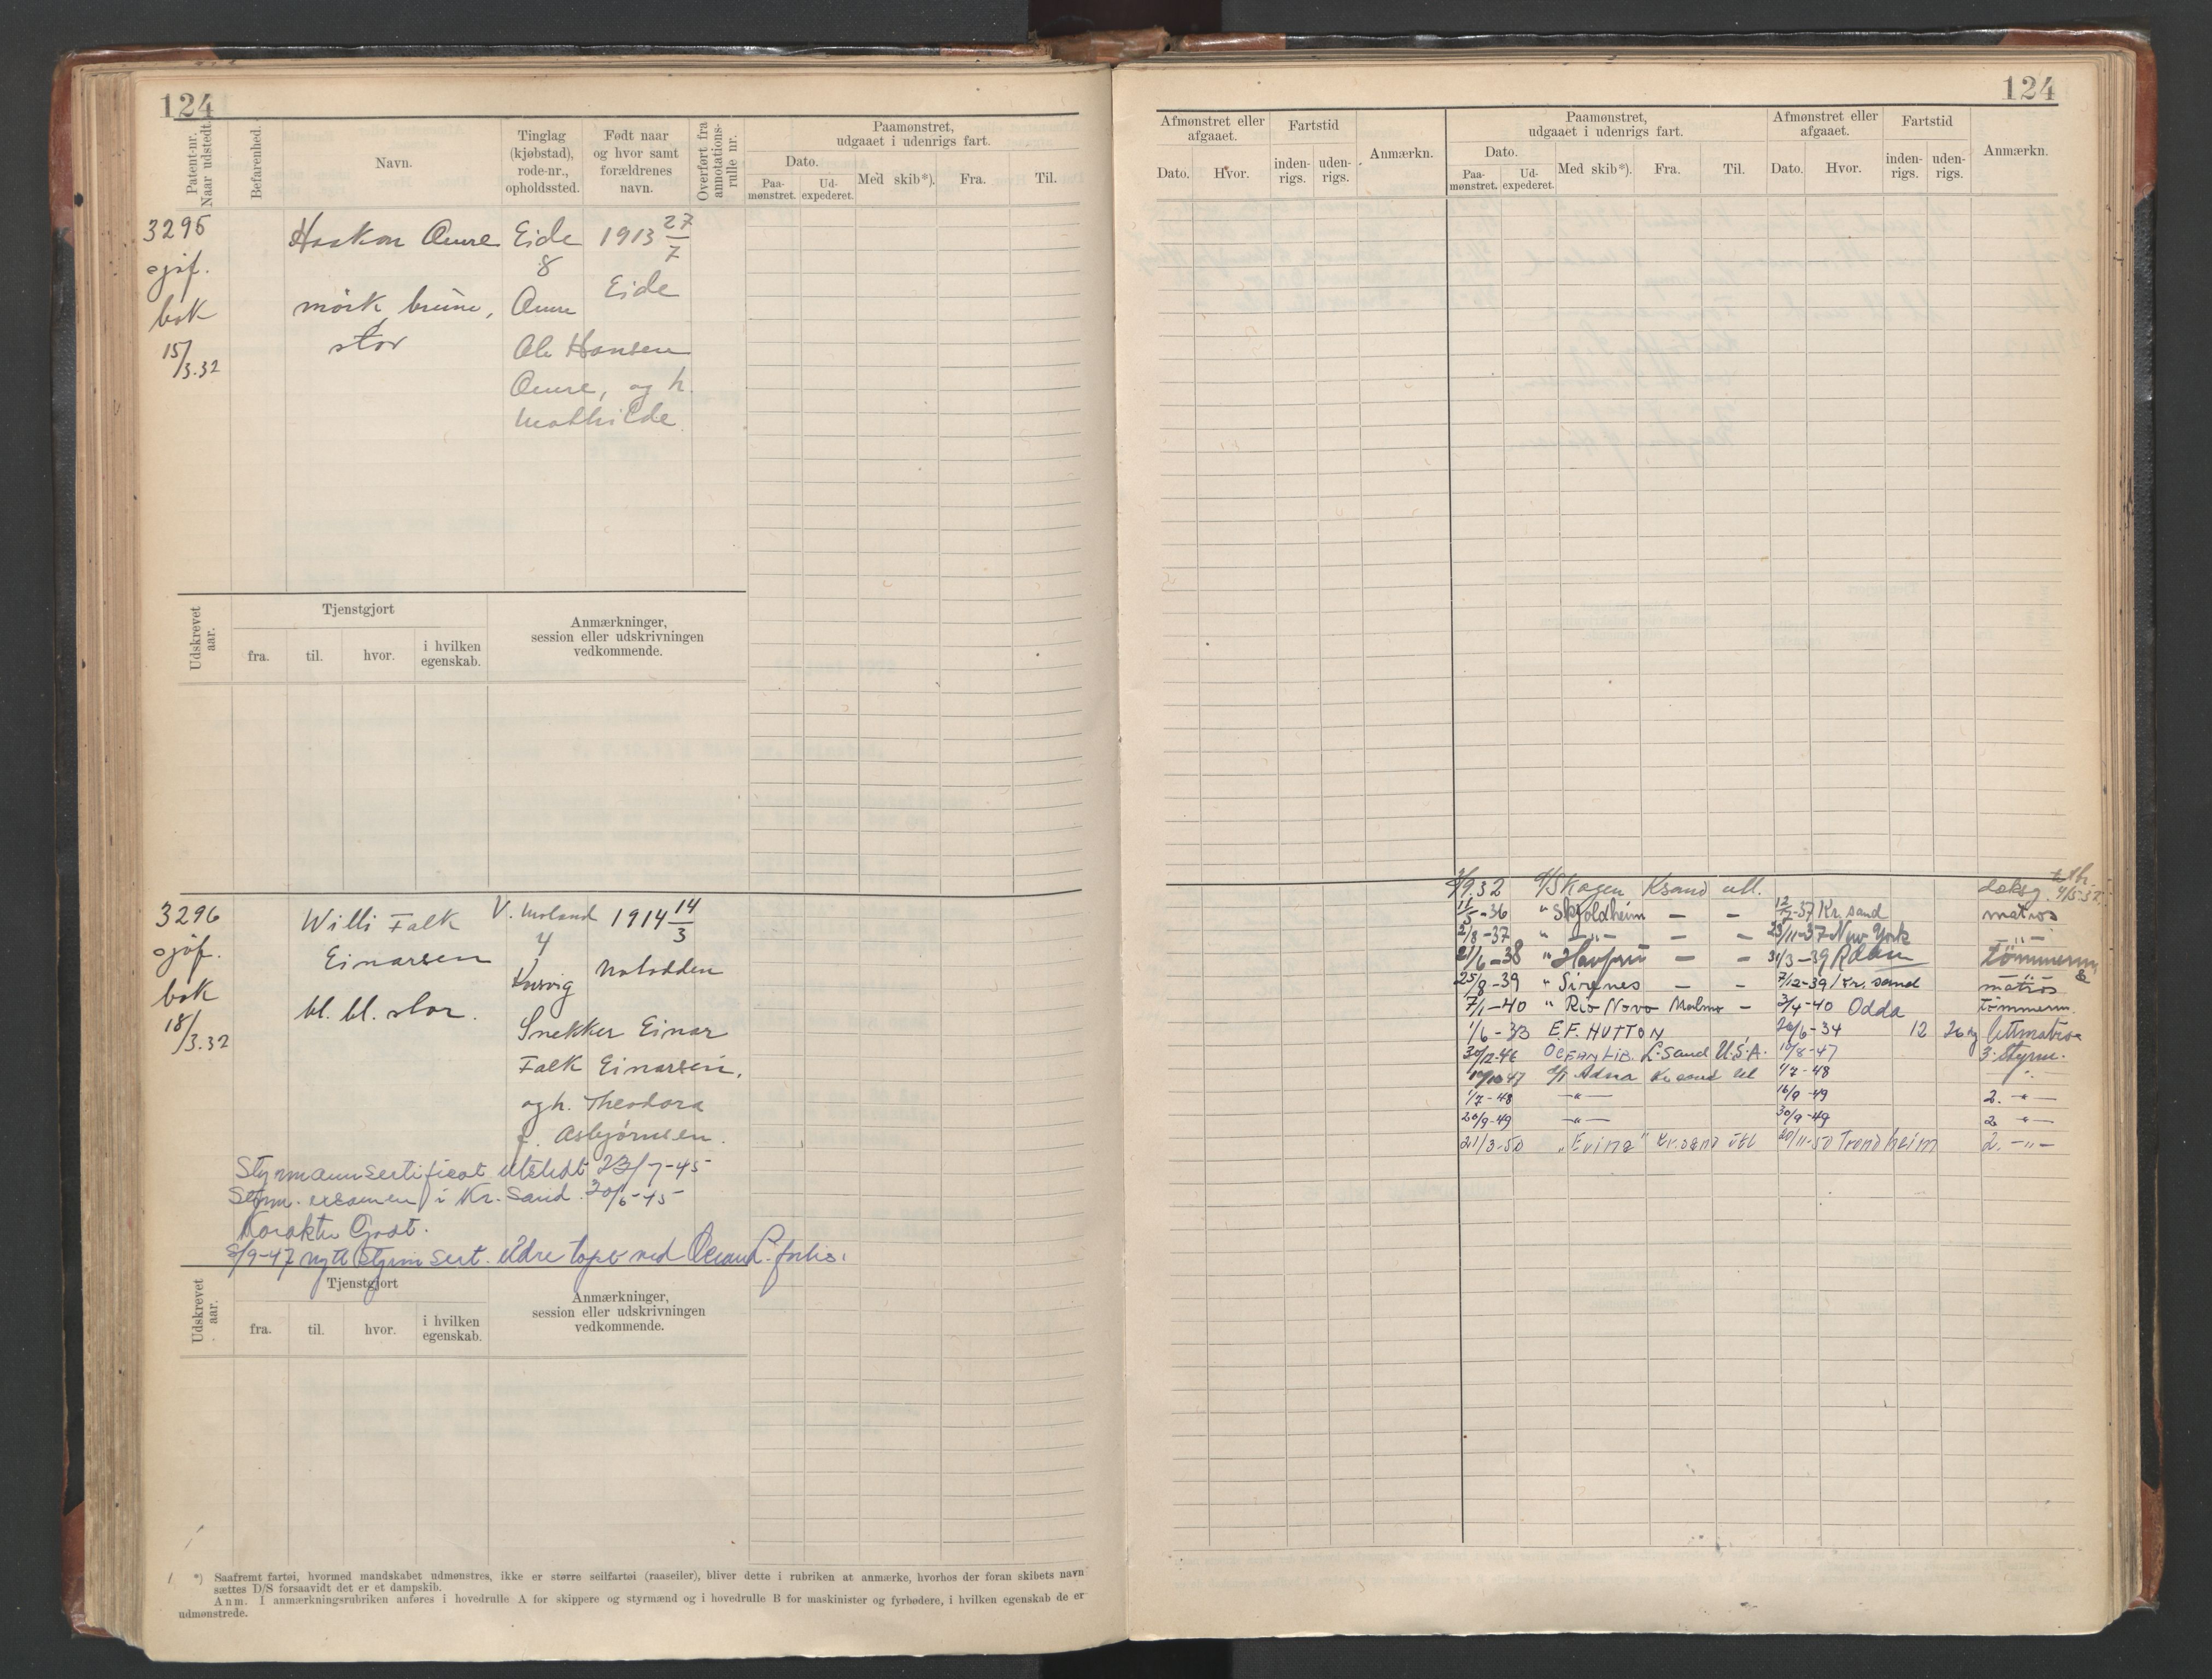 124
Patent-nr. Naar udstedt.
Befarenhed.
Navn.
Tinglag (kjøbstad), rode-nr., opholdssted.
Født naar og hvor samt forældrenes navn.
Overført fra annotations-rulle nr.
Paamønstret, udgaaet i udenrigs fart.
Dato.
Paa-mønstret.
Ud-expederet.
Med skib*).
Fra.
Til.
3295 Haakon Omre Eide 1913 27/7
sjøf. 8
bok mörk, brune, Omre Eide
15/3.32 stor Ole Hansen
Omre, og h.
Mathilde
Udskrevet aar.
Tjenstgjort
fra. til. hvor. i hvilken egenskab.
Anmærkninger, session eller udskrivningen vedkommende.
3296 Willi Falk V. Moland 1914 14/3
sjøf. Einarsen 4
bok Notodden
18/3.32 bl. bl. stor.
Snekker Einar
Falk Einarsen,
og h. Theodora
f. Asbjørnsen.
Styrmannsertificat utstedt 23/7-45
Styrm. examen i Kr. Sand. 30/6-45
Karakter Godt.
8/9-47 nytt styrm sert. eldre tapt ved Ocean L. forlis.
Udskrevet aar.
Tjenstgjort
fra. til. hvor. i hvilken egenskab.
Anmærkninger, session eller udskrivningen vedkommende.
*) Saafremt fartøi, hvormed mandskabet udmønstres, ikke er større seilfartøi (raaseiler), bliver dette i rubriken at anmærke, hvorhos der foran skibets navn
sættes D/S forsaavidt det er et dampskib.
Anm. I anmærkningsrubriken anføres i hovedrulle A for skippere og styrmænd og i hovedrulle B for maskinister og fyrbødere, i hvilken egenskab de er
udmønstrede.
124
Afmønstret eller afgaaet.
Dato. Hvor.
Fartstid
inden-rigs. uden-rigs.
Anmærkn.
Paamønstret, udgaaet i udenrigs fart.
Dato.
Paa-mønstret. Ud-expederet.
Med skib*). Fra. Til.
Afmønstret eller afgaaet.
Dato. Hvor.
Fartstid
inden-rigs. uden-rigs.
Anmærkn.
Skagen Ksand utl. doksg.
11/5-36 " Skjoldheim — — 37 Kr. sand matros
2/8-37 " —"— — — 23/11-37 New York —"—
21/6-38 " Havfru — — 31/3-39 Rdam tömmerm
25/8-39 " Sirenes — — 7/12-39 Kr. sand matros
7/1-40 " Rio Novo Malmø — 3/4-40 Odda tömmerm.
1/6-33 E.F. HUTTON 26/6-34 12 26 lettmatros
30/12-46 OCEAN LIB. L. Sand U.S.A. 10/8-47 3. Styrm.
47 Adna Kr. sand utl 1/7-48 —"—
1/7-48 —"— 16/9-49 2. —"—
20/9-49 —"— 30/9-49 2 —"—
21/3-50 "Evina" Kr. sand utl 20/11-50 Trondheim 2. —"—